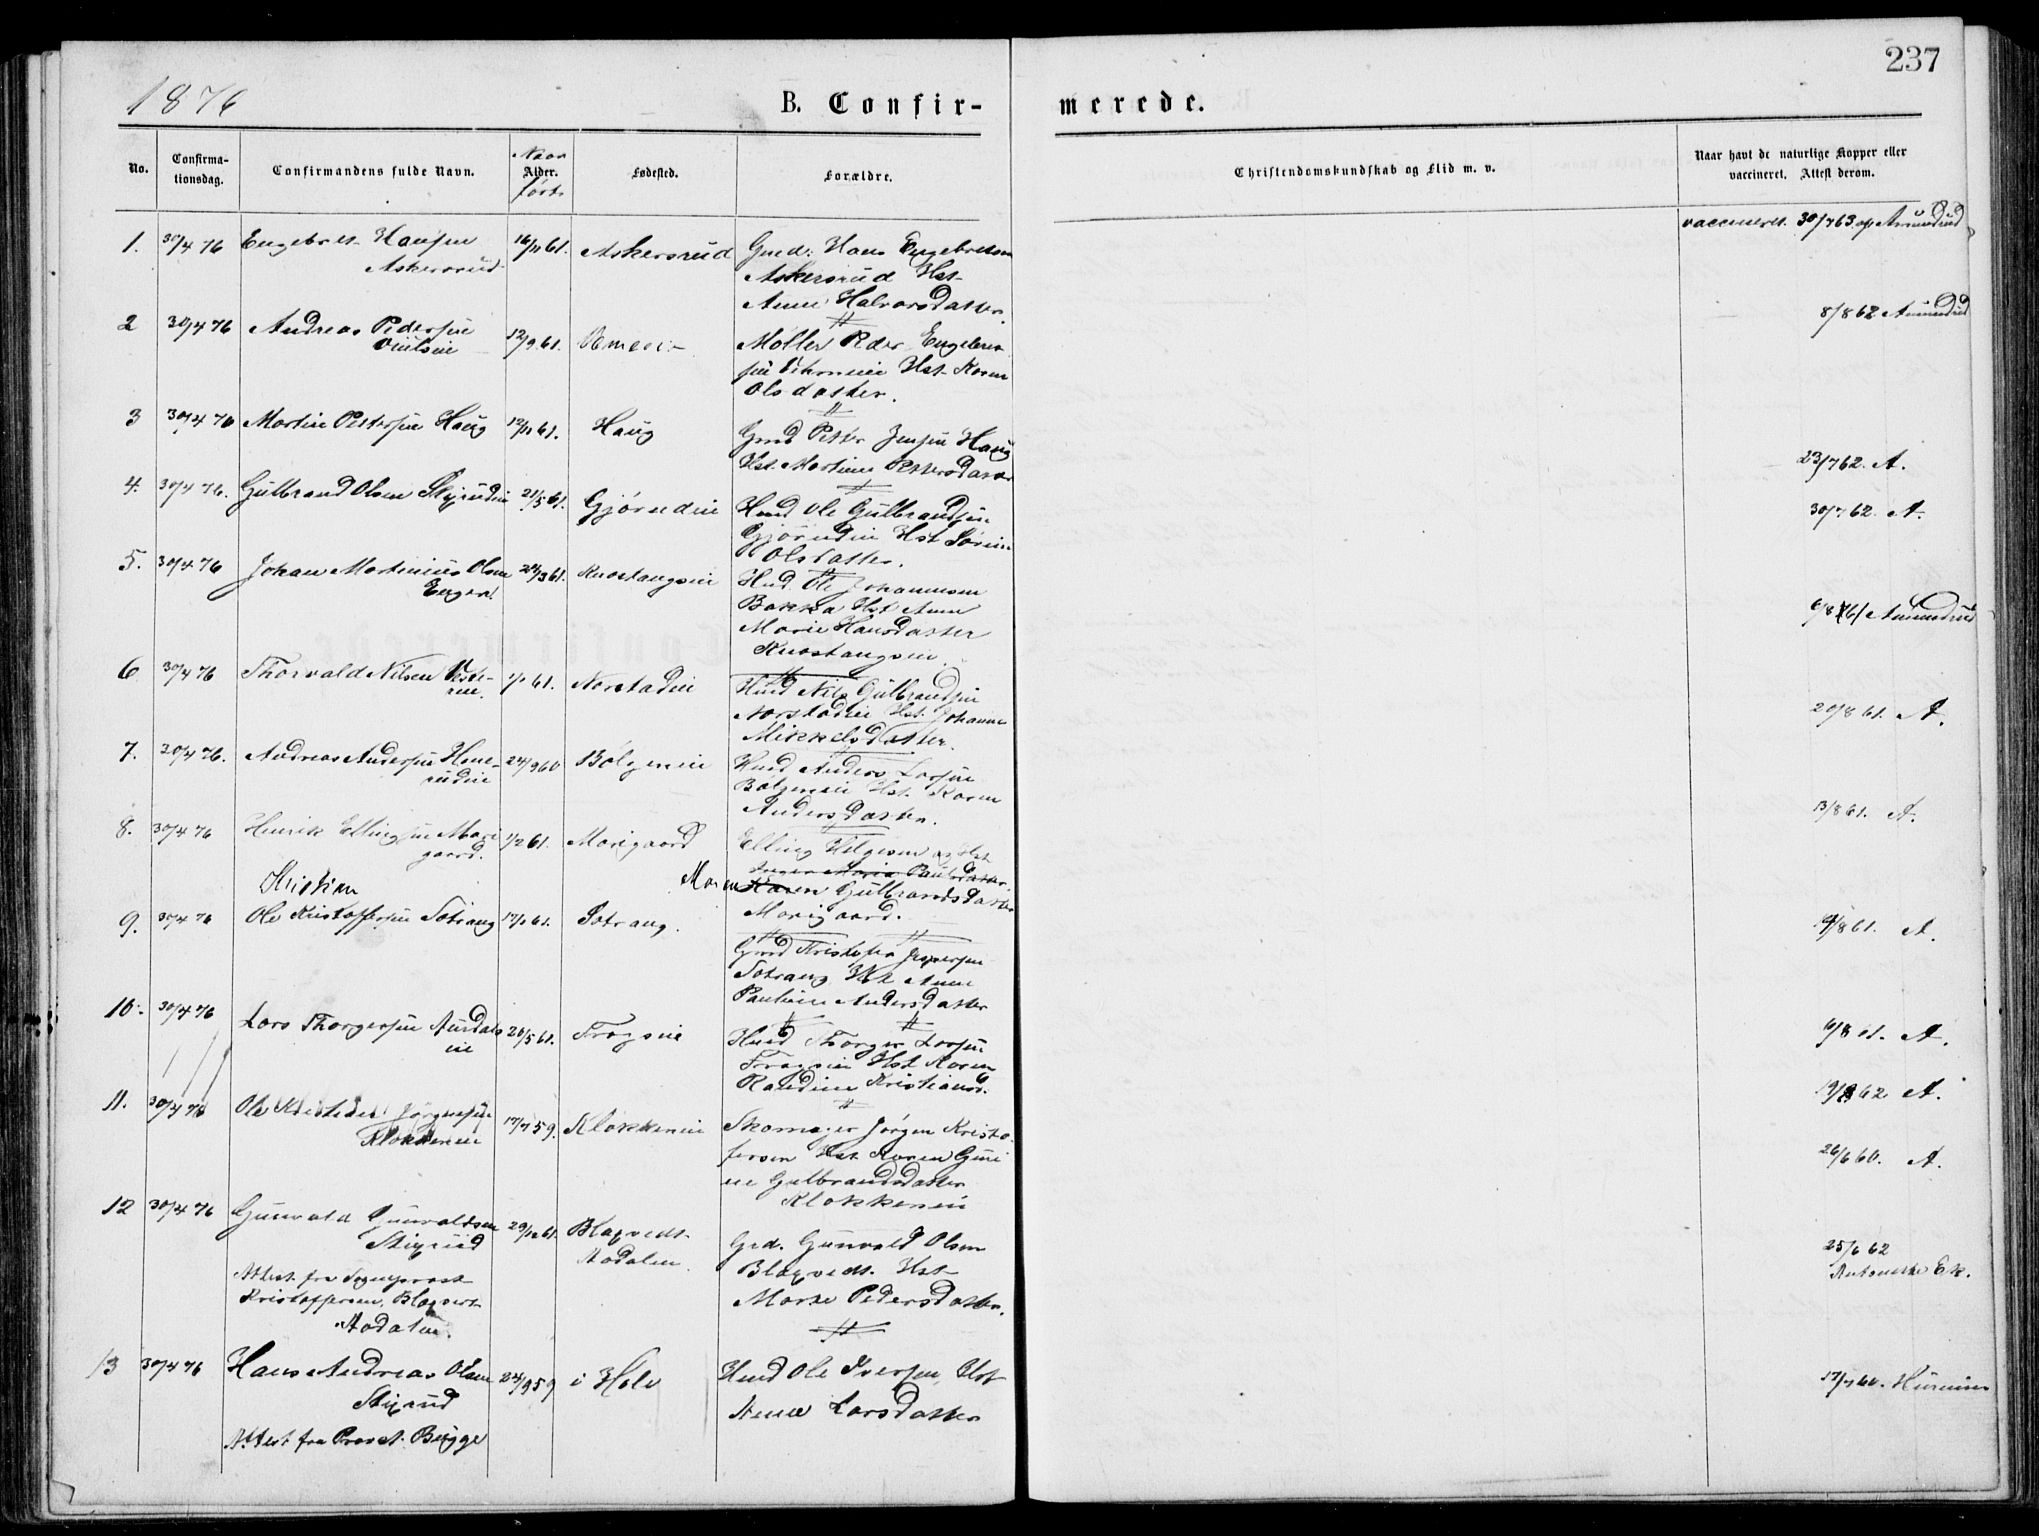 237
1876
B. Confir- merede.
No.
Confirma-
tionsdag.
Confirmandens fulde Navn.
Naar
Alder.
født
Fødested.
Forældre.
Christendomskundskab og Flid m. v.
Naar havt de naturlige Kopper eller
vaccineret. Attest derom.
1. 30/4 76 Engebret Hansen 16/11 61. Askersrud Gmd. Hans Engebretsen vaccineret. 30/7 63 af Amundrud
Askersrud Askersrud Hst
Anne Halvorsdatter.
2 30/4 76 Andreas Pedersen 12/9 61. Møller Peder 8/8 62 Amundrud
Hst. Karen
Olsdatter.
3 30/4 76 Martin Pettersen Haug 12/11 61. Haug Gmd Petter Jensen Haug 23/7 62. A.
Hst. Martine Pettersdatter
4. 30/4 76. Gulbrand Olsen 21/5 61. Gjørudeie Hmd Ole Gulbrandsen 30/7 62. A.
Gjørudeie Hst
Olsdatter.
5. 30/4 76 Johan Martinius Olsen 24/3 61. Knestangseie Hmd Ole Johannesen 6/8 61 Amundrud
Enger. Bakka Hst Anne
Marie Hansdatter
Knestangseie
6 30/4 76 Thorvald Nilsen 1/1 61. Norstadeie Hmd Nils Gulbrandsen 20/8 61. A.
Norstadeie Hst. Johanne
Mikkelsdatter.
7. 30/4 76. Andreas Andersen 24/9 60 Bølgeneie Hmd Anders Larsen 13/8 61. A.
Bølgeneie Hst Karen
Andersdatter.
8. 30/4 76 Henrik Ellingsen Mori- 1/2 61. Morigaard Elling Helgesen og Hst
gaard. Inger Maria Paulsdatter.
Maren Karen Gulbrandsdatter
Morigaard.
Kristian
9. 30/4 76 Ole Kristoffersen Sotrang 17/1 61. Sotrang. Gmd Kristofer Jespersen 19/8 61. A.
Sotrang Hst Anne
Pauline Andersdatter
10. 30/4 76 Lars Thorgersen Aurdals 20/5 61. Frogseie Hmd Thorger Larsen 6/8 61. A.
eie Frogseie Hst Karen
Randine Kristiansd.
11. 30/4 76 Ole Jørgensen 17/7 59. Klokkereie Skomager Jørgen Kristo- 19/8 62 A.
Klokkereie fersen Hst Karen Guri-
ne Gulbrandsdatter
Klokkereie
26/6 60. A.
12 30/4 76 Gunvald Gunvaldsen 29/12 61. Blaqvedt Grd. Gunvald Olsen 25/6 62
Stixrud Aadalen. Blaqvedt. Hst
Attest fra Sogneprest Marte Pedersdatter.
Kristoffersen, Blaqvedt
Aadalen.
13 30/4 76 Hans Andreas Olsen 24/9 59 i Hole Hmd Ole Iversen, Hst 17/7 60.
Stixrud Anne Larsdatter
Attest fra Provst Bugge